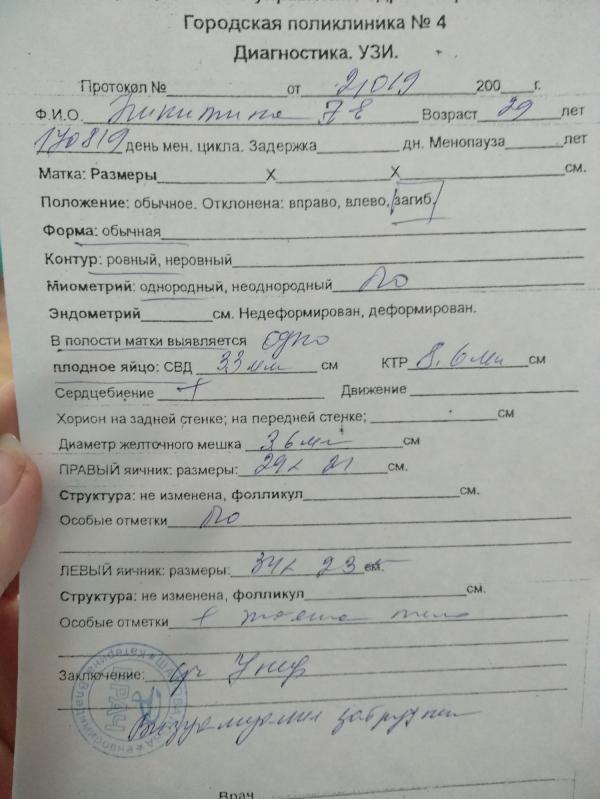 Городская поликлиника № 4
Диагностика. УЗИ.
Протокол № от 21019 200 г.
Ф.И.О. Никитина Возраст 29 лет
170819 день мен. цикла. Задержка дн. Менопауза лет
Матка: Размеры Х Х см.
Положение: обычное. Отклонена: вправо, влево, загиб.
Форма: обычная
Контур: ровный, неровный
Миометрий: однородный, неоднородный по
Эндометрий см. Недеформирован, деформирован.
В полости матки выявляется одно
плодное яйцо: СВД 33мм см КТР 8,6мм см
Сердцебиение + Движение
Хорион на задней стенке; на передней стенке; см
Диаметр желточного мешка 3,6мм см
ПРАВЫЙ яичник: размеры: 29х21 см.
Структура: не изменена, фолликул см.
Особые отметки по
ЛЕВЫЙ яичник: размеры: 34х 23 см.
Структура: не изменена, фолликул см.
Особые отметки + тело
Заключение:
Визуализация затруднен
Врач